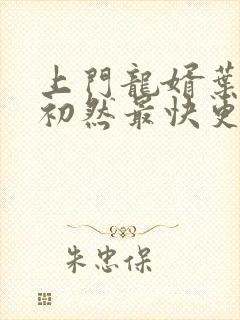 上門龍婿葉
初然最快更
朱忠保